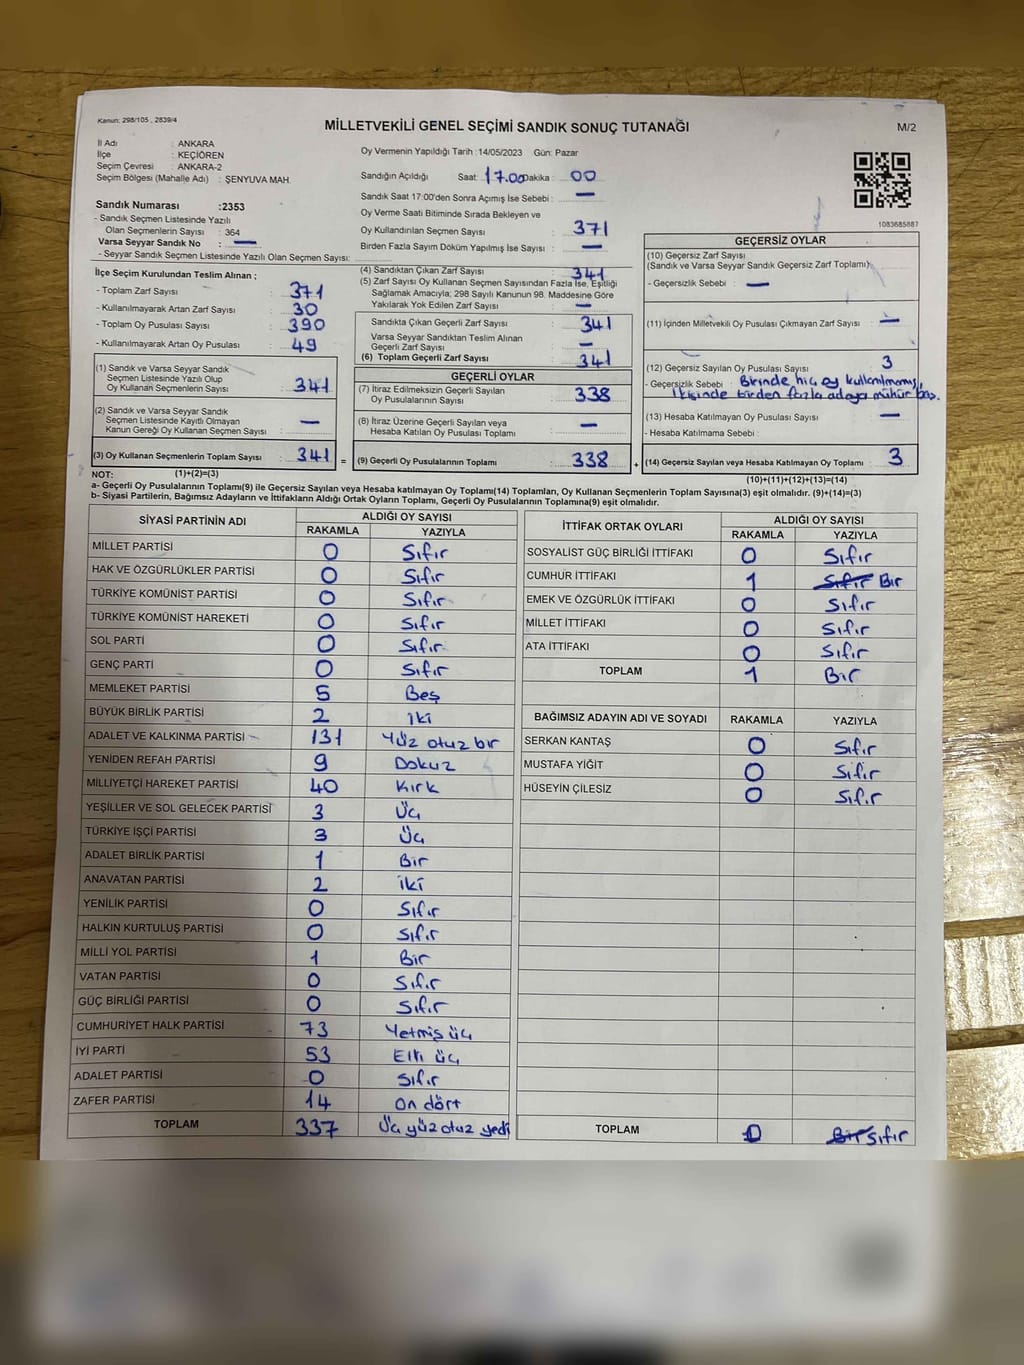 Kanun: 298/105 , 2839/4
MİLLETVEKİLİ GENEL SEÇİMİ SANDIK SONUÇ TUTANAĞI
M/2
İl Adı : ANKARA
İlçe : KEÇİÖREN
Seçim Çevresi : ANKARA-2
Seçim Bölgesi (Mahalle Adı) : ŞENYUVA MAH.
Sandık Numarası :2353
- Sandık Seçmen Listesinde Yazılı
Olan Seçmenlerin Sayısı : 364
Varsa Seyyar Sandık No : —
- Seyyar Sandık Seçmen Listesinde Yazılı Olan Seçmen Sayısı:
Oy Vermenin Yapıldığı Tarih :14/05/2023 Gün: Pazar
Sandığın Açıldığı Saat: 17.00 Dakika : 00
Sandık Saat 17:00'den Sonra Açımış İse Sebebi : —
Oy Verme Saati Bitiminde Sırada Bekleyen ve
Oy Kullandırılan Seçmen Sayısı : 371
Birden Fazla Sayım Döküm Yapılmış İse Sayısı : —
1083685887
İlçe Seçim Kurulundan Teslim Alınan ;
- Toplam Zarf Sayısı : 371
- Kullanılmayarak Artan Zarf Sayısı : 30
- Toplam Oy Pusulası Sayısı : 390
- Kullanılmayarak Artan Oy Pusulası : 49
(1) Sandık ve Varsa Seyyar Sandık
Seçmen Listesinde Yazılı Olup
Oy Kullanan Seçmenlerin Sayısı : 341
(2) Sandık ve Varsa Seyyar Sandık
Seçmen Listesinde Kayıtlı Olmayan
Kanun Gereği Oy Kullanan Seçmen Sayısı : —
(3) Oy Kullanan Seçmenlerin Toplam Sayısı : 341 =
(4) Sandıktan Çıkan Zarf Sayısı : 341
(5) Zarf Sayısı Oy Kullanan Seçmen Sayısından Fazla İse, Eşitliği
Sağlamak Amacıyla; 298 Sayılı Kanunun 98. Maddesine Göre
Yakılarak Yok Edilen Zarf Sayısı : —
Sandıkta Çıkan Geçerli Zarf Sayısı : 341
Varsa Seyyar Sandıktan Teslim Alınan
Geçerli Zarf Sayısı : —
(6) Toplam Geçerli Zarf Sayısı : 341
GEÇERLİ OYLAR
(7) İtiraz Edilmeksizin Geçerli Sayılan
Oy Pusulalarının Sayısı : 338
(8) İtiraz Üzerine Geçerli Sayılan veya
Hesaba Katılan Oy Pusulası Toplamı : —
(9) Geçerli Oy Pusulalarının Toplamı : 338 +
GEÇERSİZ OYLAR
(10) Geçersiz Zarf Sayısı
(Sandık ve Varsa Seyyar Sandık Geçersiz Zarf Toplamı):
- Geçersizlik Sebebi : —
(11) İçinden Milletvekili Oy Pusulası Çıkmayan Zarf Sayısı : —
(12) Geçersiz Sayılan Oy Pusulası Sayısı : 3
- Geçersizlik Sebebi : Birinde hiç oy kullanılmamış,
ikisinde birden fazla adaya mühür bas.
(13) Hesaba Katılmayan Oy Pusulası Sayısı : —
- Hesaba Katılmama Sebebi :
(14) Geçersiz Sayılan veya Hesaba Katılmayan Oy Toplamı : 3
NOT: (1)+(2)=(3)
(10)+(11)+(12)+(13)=(14)
a- Geçerli Oy Pusulalarının Toplamı(9) ile Geçersiz Sayılan veya Hesaba katılmayan Oy Toplamı(14) Toplamları, Oy Kullanan Seçmenlerin Toplam Sayısına(3) eşit olmalıdır. (9)+(14)=(3)
b- Siyasi Partilerin, Bağımsız Adayların ve İttifakların Aldığı Ortak Oyların Toplamı, Geçerli Oy Pusulalarının Toplamına(9) eşit olmalıdır.
SİYASİ PARTİNİN ADI ALDIĞI OY SAYISI
RAKAMLA YAZIYLA
MİLLET PARTİSİ 0 Sıfır
HAK VE ÖZGÜRLÜKLER PARTİSİ 0 Sıfır
TÜRKİYE KOMÜNİST PARTİSİ 0 Sıfır
TÜRKİYE KOMÜNİST HAREKETİ 0 Sıfır
SOL PARTİ 0 Sıfır
GENÇ PARTİ 0 Sıfır
MEMLEKET PARTİSİ 5 Beş
BÜYÜK BİRLİK PARTİSİ 2 iki
ADALET VE KALKINMA PARTİSİ 131 Yüz otuz bir
YENİDEN REFAH PARTİSİ 9 Dokuz
MİLLİYETÇİ HAREKET PARTİSİ 40 Kırk
YEŞİLLER VE SOL GELECEK PARTİSİ 3 Üç
TÜRKİYE İŞÇİ PARTİSİ 3 Üç
ADALET BİRLİK PARTİSİ 1 Bir
ANAVATAN PARTİSİ 2 iki
YENİLİK PARTİSİ 0 Sıfır
HALKIN KURTULUŞ PARTİSİ 0 Sıfır
MİLLİ YOL PARTİSİ 1 Bir
VATAN PARTİSİ 0 Sıfır
GÜÇ BİRLİĞİ PARTİSİ 0 Sıfır
CUMHURİYET HALK PARTİSİ 73 Yetmiş üç
İYİ PARTİ 53 Elli üç
ADALET PARTİSİ 0 Sıfır
ZAFER PARTİSİ 14 On dört
TOPLAM 337 Üç yüz otuz yedi
İTTİFAK ORTAK OYLARI ALDIĞI OY SAYISI
RAKAMLA YAZIYLA
SOSYALİST GÜÇ BİRLİĞİ İTTİFAKI 0 Sıfır
CUMHUR İTTİFAKI 1 Sıfır Bir
EMEK VE ÖZGÜRLÜK İTTİFAKI 0 Sıfır
MİLLET İTTİFAKI 0 Sıfır
ATA İTTİFAKI 0 Sıfır
TOPLAM 1 Bir
BAĞIMSIZ ADAYIN ADI VE SOYADI RAKAMLA YAZIYLA
SERKAN KANTAŞ 0 Sıfır
MUSTAFA YİĞİT 0 Sıfır
HÜSEYİN ÇİLESİZ 0 Sıfır
TOPLAM 0 Bir Sıfır